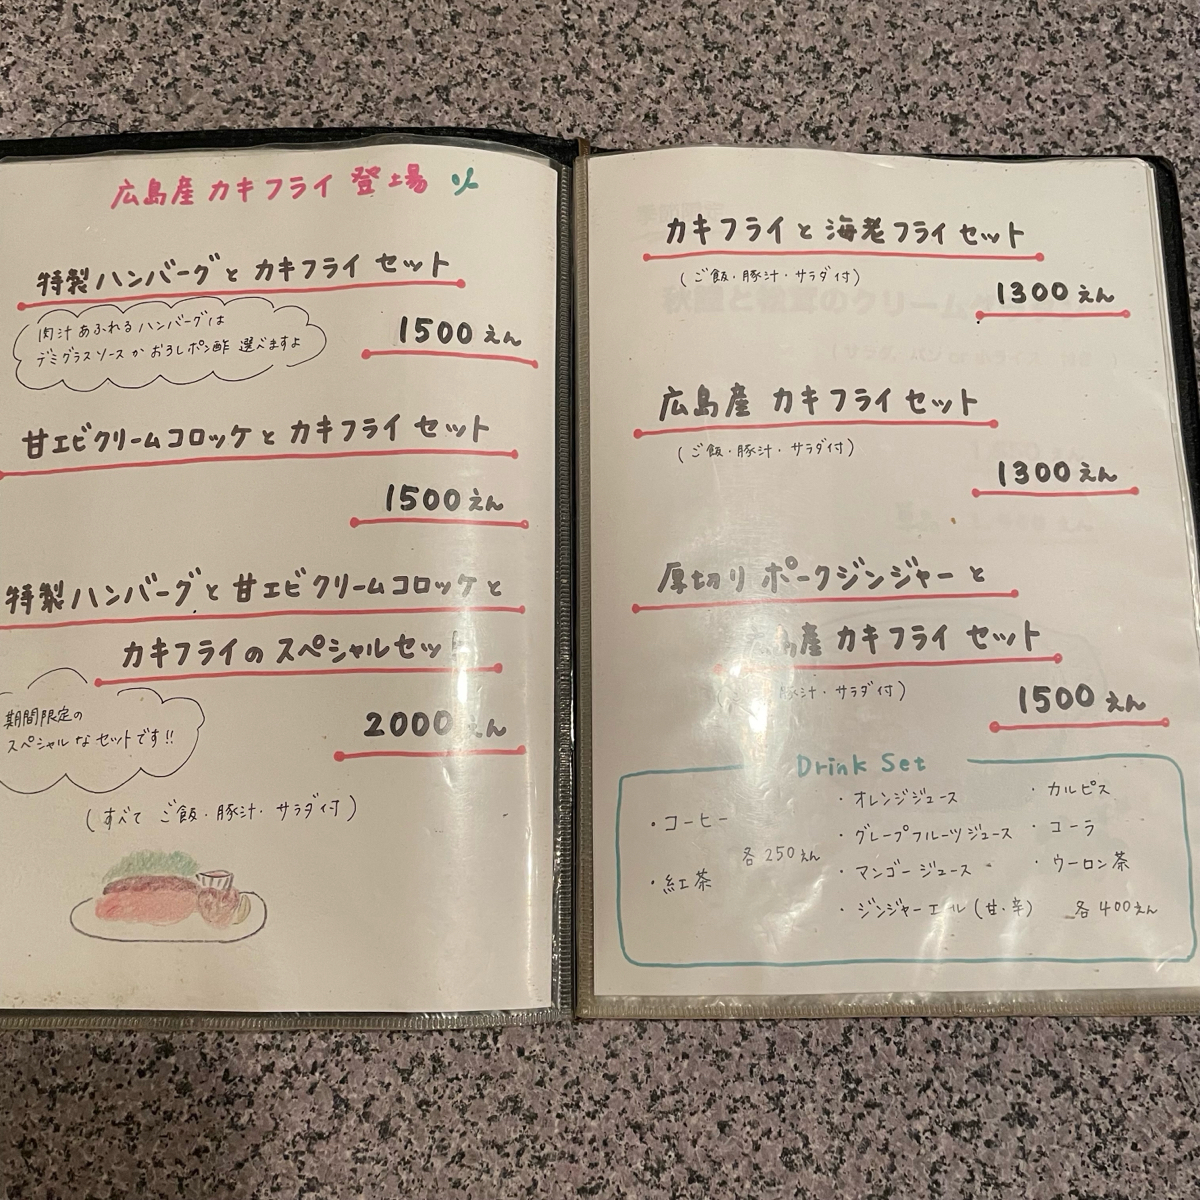 広島産カキフライ登場
特製ハンバーグとカキフライセット
肉汁あふれるハンバーグは
デミグラスソースかおろしポン酢選べますよ
1500えん
甘エビクリームコロッケとカキフライセット
1500えん
特製ハンバーグと甘エビクリームコロッケと
カキフライのスペシャルセッ
期間限定の
スペシャルなセットです!!
2000えん
(すべて ご飯・豚汁・サラダ付)
カキフライと海老フライセット
(ご飯・豚汁・サラダ付)
1300えん
広島産カキフライセット
(ご飯・豚汁・サラダ付)
1300えん
厚切りポークジンジャーと
広島産カキフライセット
豚汁・サラダ付)
1500えん
Drink Set
・コーヒー
・紅茶
各250えん
・オレンジジュース
・グレープフルーツジュース
・マンゴージュース
・ジンジャーエール(甘・辛)
・カルピス
・コーラ
・ウーロン茶
各400えん